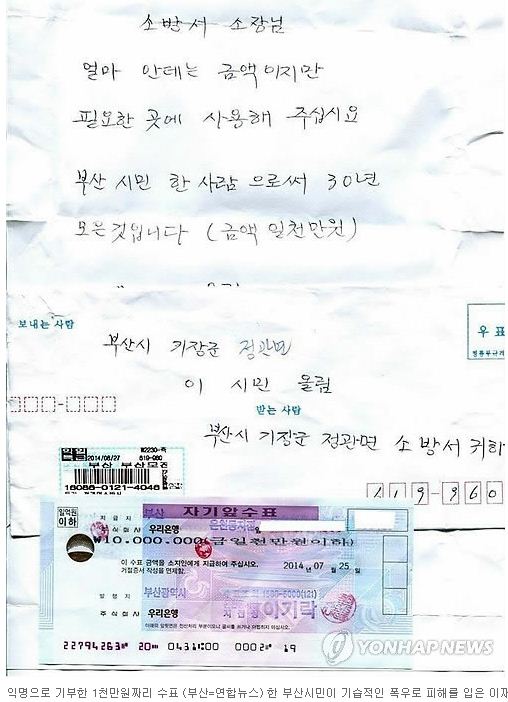 소방서 소장님
얼마 안테는 금액이지만
필요한 곳에 사용해 주십시요
부산 시민 한 사람 으로써 30년
모은것입니다 (금액 일천만원)
보내는 사람
우표
부산시 기장군 정관면
이 시민 올림
받는 사람
부산시 기장군 정관면 소방서 귀하
119-960
2014/08/27
부산 부산모전
16086-0121-4046
일억원
이하
부산 자기앞수표
지급지
주식회사 우리은행
₩10,000,000(금일천만원이하)
이 수표 금액을 소지인에게 지급하여 주십시오.
거절증서 작성을 면제함.
2014 년 07 월 25 일
발행지 부산광역시
주식회사 우리은행
이기락
22794263 20 0431100 0002 19
YONHAP NEWS
익명으로 기부한 1천만원짜리 수표 (부산=연합뉴스) 한 부산시민이 기습적인 폭우로 피해를 입은 이재